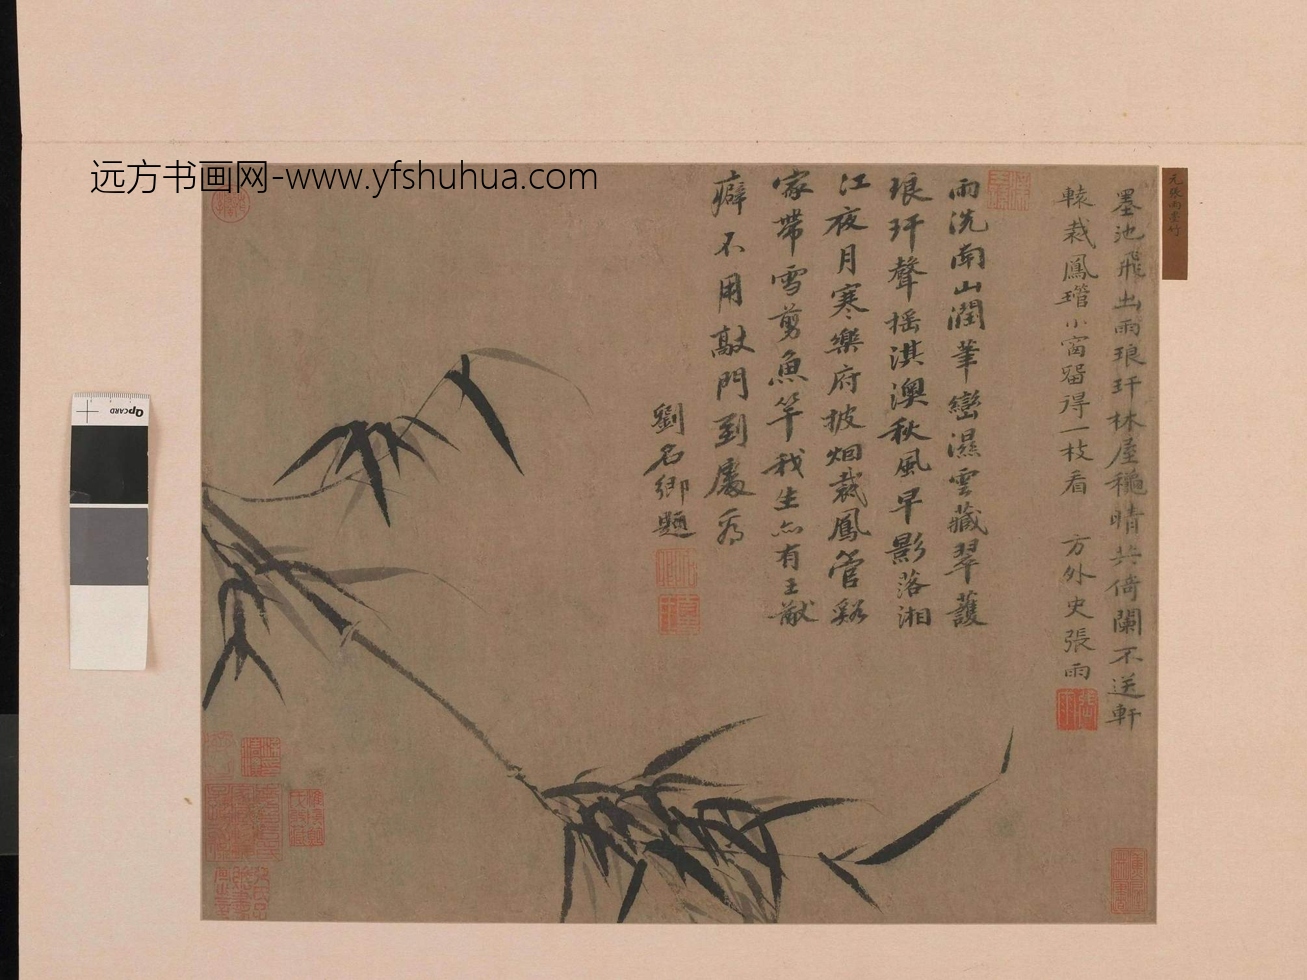 远方书画网-www.yfshuhua.com
元張雨墨竹
墨池飛出雨琅玕林屋龝晴共倚闌不送軒
轅栽鳳琯小窗留得一枝看 方外史張雨
雨洗南山潤筆巒濕雲藏翠護
琅玕聲搖淇澳秋風早影落湘
江夜月寒樂府披烟裁鳳管谿
家帶雪剪魚竿我生亦有王猷
癖不用敲門到處看
劉名卿題
張雨
QpCARD